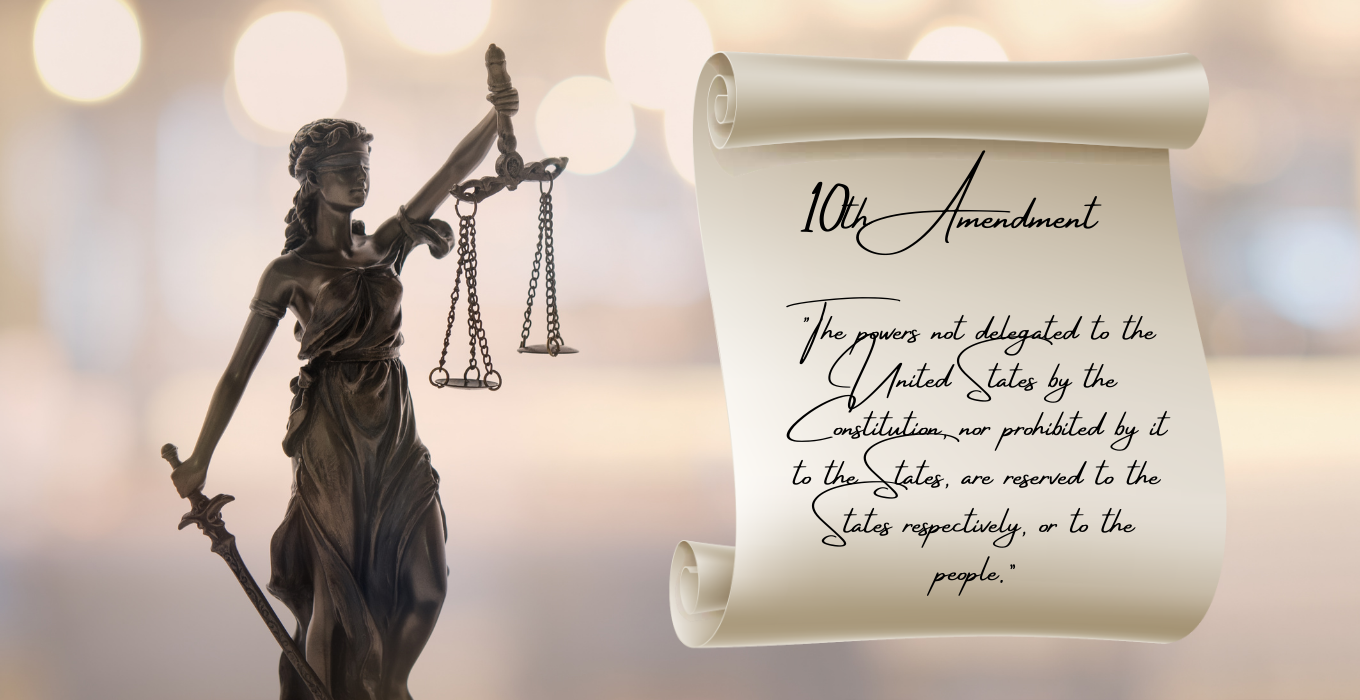 10th Amendment
"The powers not delegated to the
United States by the
Constitution, nor prohibited by it
to the States, are reserved to the
States respectively, or to the
people."